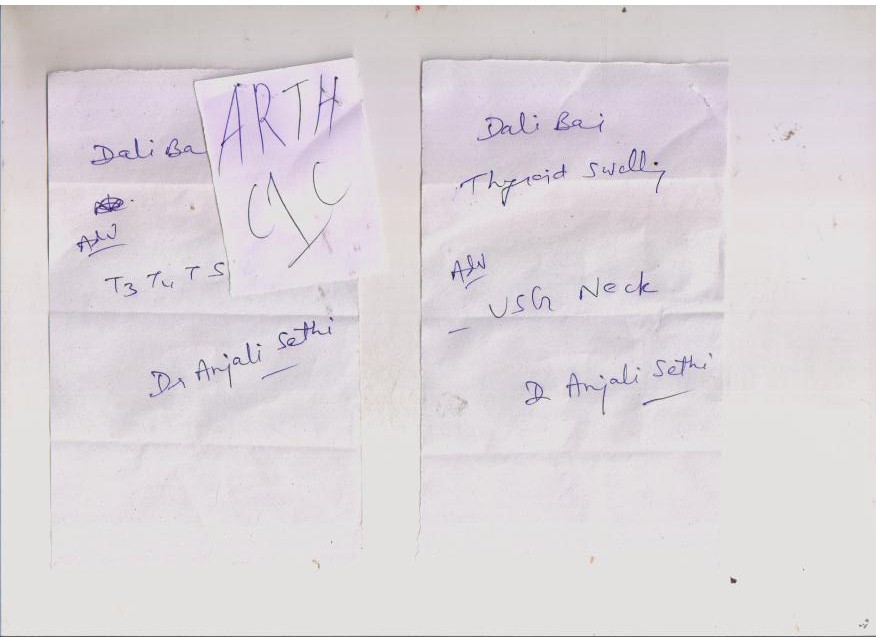 Dali Ba
Adv
T3 T4 TS
Dr Anjali Sethi
ARTH
Dali Bai
Thyroid Swelling
Adv
- USG Neck
Dr Anjali Sethi